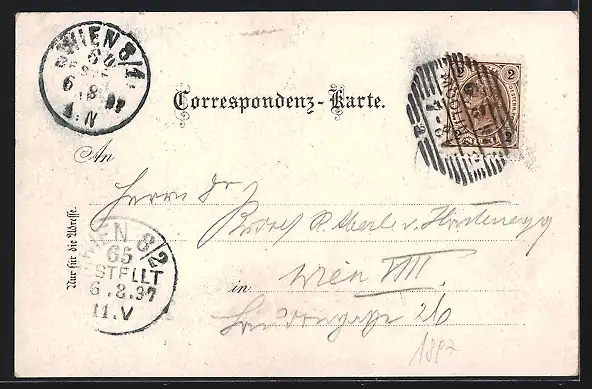 WIEN 8/1
6.8.97
Correspondenz-Karte.
2 2
2
An
Herrn Dr
Rudolf R. Aberle v.
Nur für die Adresse.
WIEN 8/2
65
BESTELLT
6.8.97
11.V
in Wien VIII
26
1897